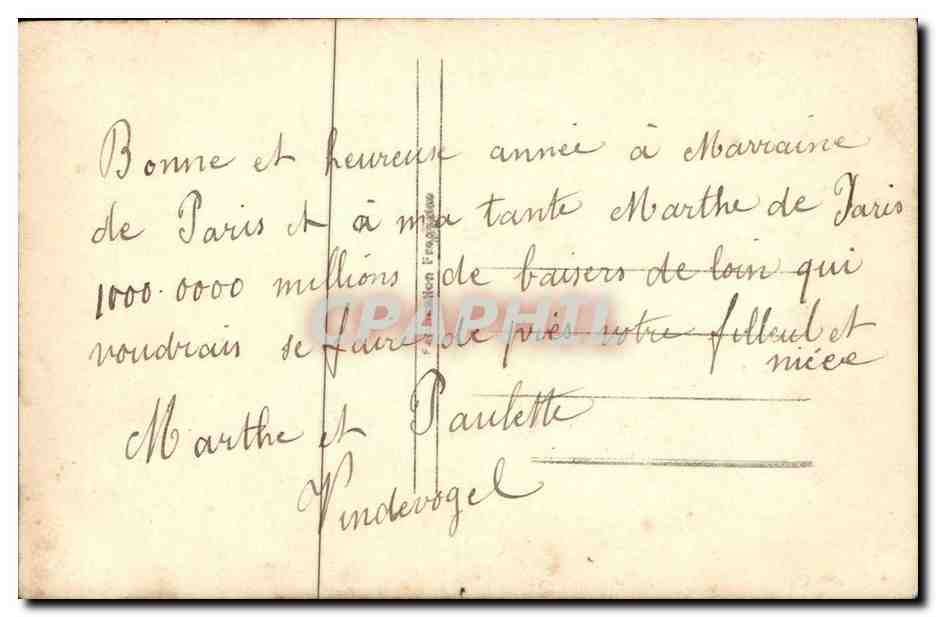 Bonne et heureuse année à Marraine
de Paris et à ma tante Marthe de Paris
1000.0000 millions de baisers de loin qui
voudrais se faire de près votre filleul et
nièce
Marthe et Paulette
Vindevogel
Fabrication Française
CPAPHIL